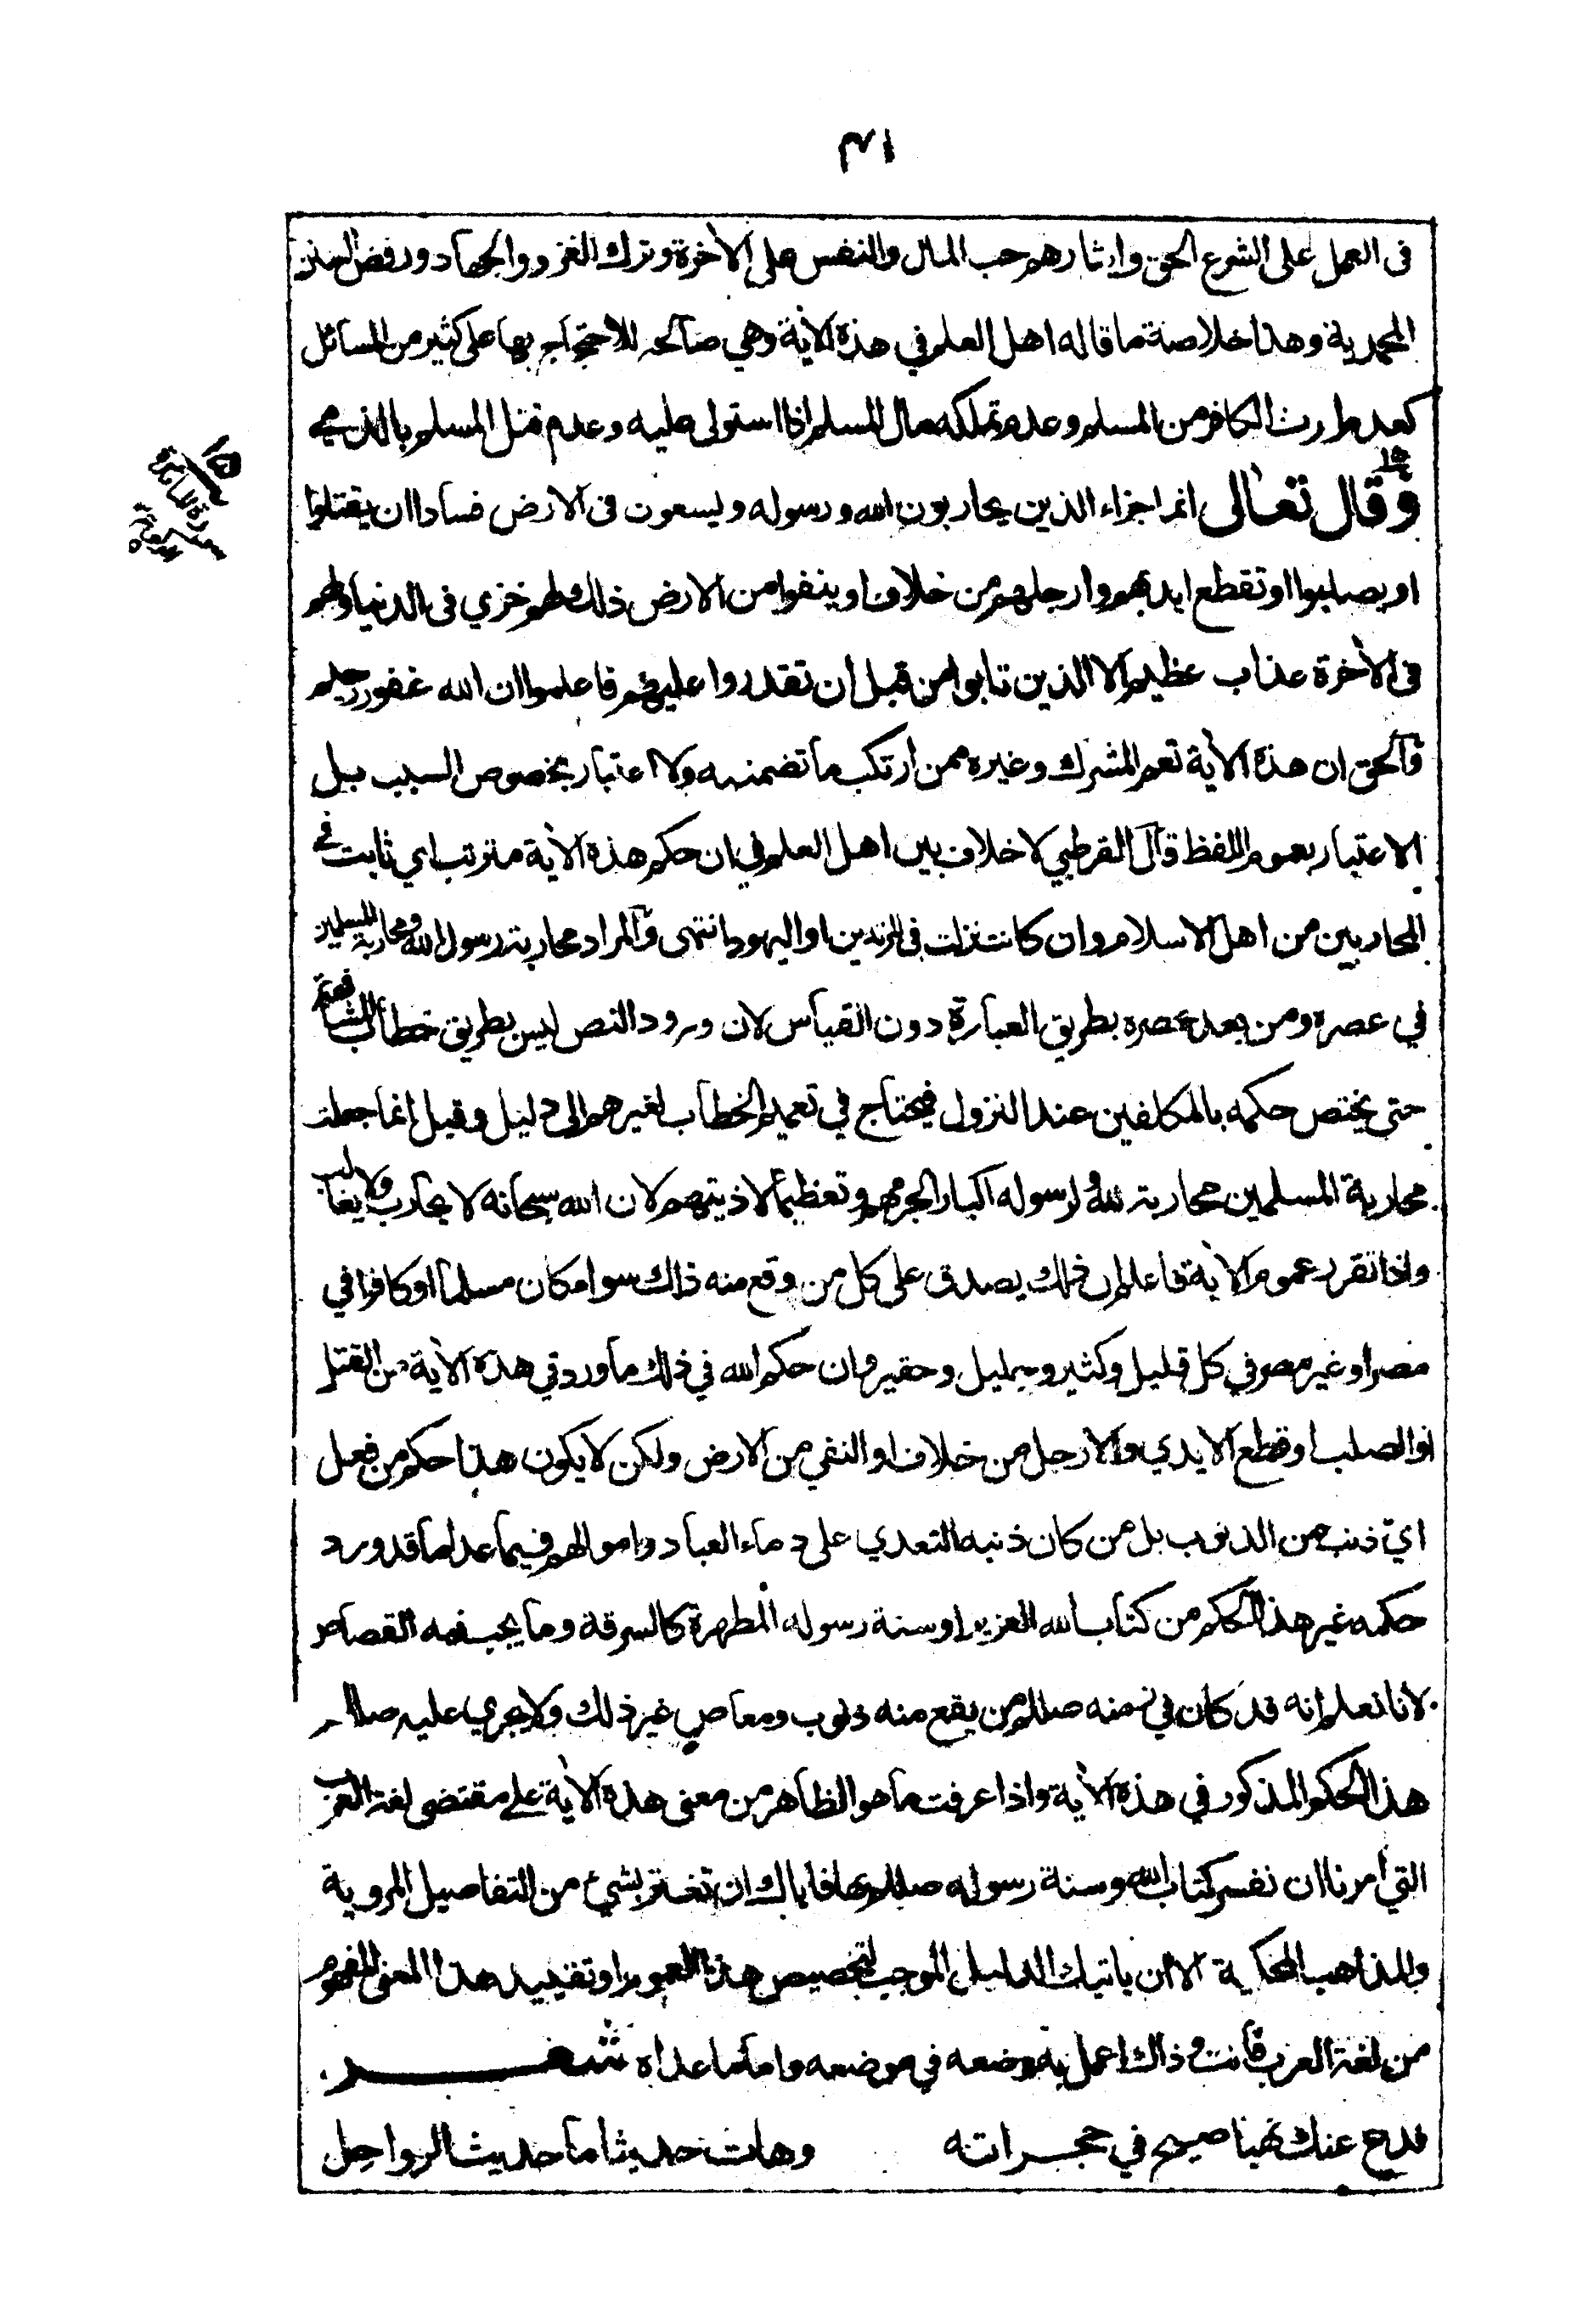 ٣١
فى العمل على الشرع الحق وايثارهم حب المال والنفس على الأخرة وترك الغزو والجهاد ورفض السنن
المحمدية وهذا خلاصة ما قاله اهل العلم في هذه الأية وهي صالحة للاحتجاج بها على كثير من المسائل
كعدم ارث الكافر من المسلم وعدم تملكه مال المسلم اذا استولى عليه وعدم قتل المسلم بالذمي
وقال تعالى انما جزاء الذين يحاربون الله ورسوله ويسعون فى الارض فسادا ان يقتلوا
او يصلبوا او تقطع ايديهم وارجلهم من خلاف او ينفوا من الارض ذلك لهم خزي فى الدنيا ولهم
فى الأخرة عذاب عظيم الا الذين تابوا من قبل ان تقدروا عليهم فاعلموا ان الله غفور رحيم
والحق ان هذه الأية تعم المشرك وغيره ممن ارتكب ما تضمنته ولا اعتبار بخصوص السبب بل
الاعتبار بعموم اللفظ قال القرطبي لا خلاف بين اهل العلم في ان حكم هذه الأية مترتب اي ثابت في
المحاربين من اهل الاسلام وان كانت نزلت فى المرتدين او اليهود انتهى والمراد محاربة رسول الله ومحاربة المسلمين
في عصره ومن بعد عصره بطريق العبارة دون القياس لان ورود النص ليس بطريق خطاب المشافهة
حتى يختص حكمه بالمكلفين عند النزول فيحتاج في تعميم الخطاب لغيرهم الى دليل وقيل انما جعلت
محاربة المسلمين محاربة لله ولرسوله اكبارا لجرمهم وتعظيما لاذيتهم لان الله سبحانه لا يحارب ولا يغالب
واذا تقرر عموم الأية فاعلم ان ذلك يصدق على كل من وقع منه ذلك سواء كان مسلما او كافرا في
مصر او غير مصر في كل قليل وكثير وجليل وحقير وان حكم الله في ذلك ما ورد في هذه الأية من القتل
او الصلب او قطع الايدي والارجل من خلاف او النفي من الارض ولكن لا يكون هذا حكم من فعل
اي ذنب من الذنوب بل من كان ذنبه التعدي على دماء العباد واموالهم فيما عدا ما قد ورد
حكمه غير هذا الحكم من كتاب الله العزيز او سنة رسوله المطهرة كالسرقة وما يجب فيه القصاص
لانا نعلم انه قد كان في زمنه صللم من يقع منه ذنوب ومعاصٍ غير ذلك ولا يجري عليه صللم
هذا الحكم المذكور في هذه الأية واذا عرفت ما هو الظاهر من معنى هذه الأية على مقتضى لغة العرب
التي امرنا ان نفسر كتاب الله وسنة رسوله صللم بها فاياك ان تغتر بشيء من التفاصيل المروية
والمذاهب المحكية الا ان ياتيك الدليل الموجب لتخصيص هذا العموم او تقييد هذا المعنى المفهوم
من لغة العرب فانت وذاك اعمل به وضعه في موضعه واما ما عداه شعر
فدع عنك نهبا صيح في حجراته وهات حديثا ما حديث الرواحل